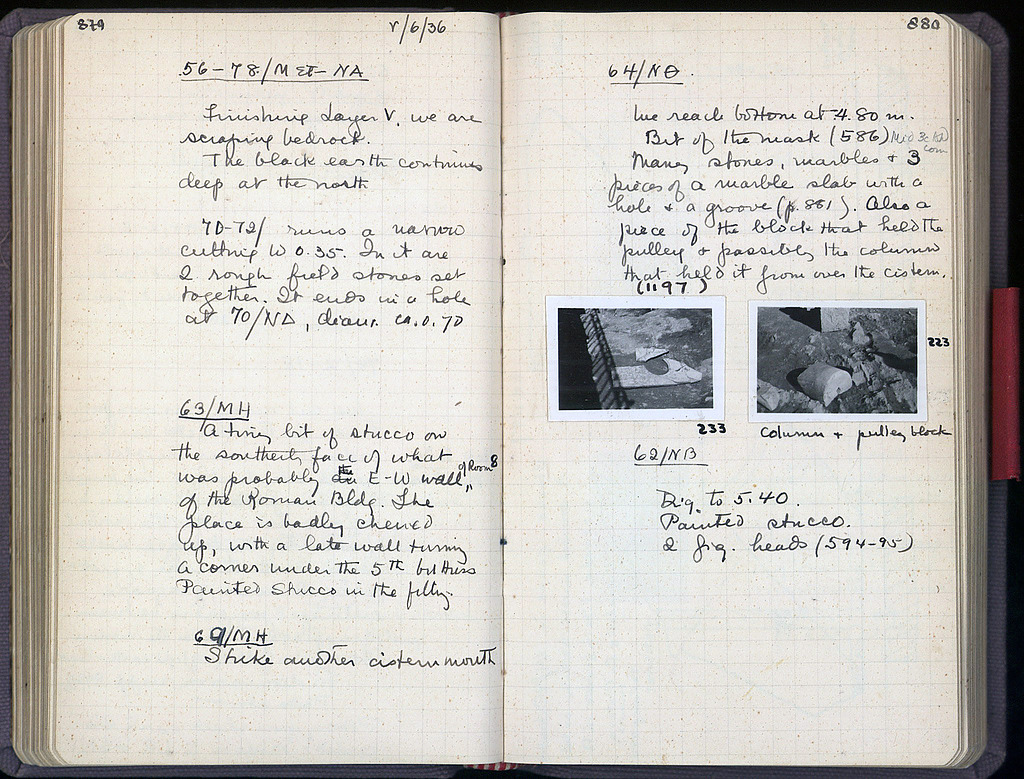 879
V/6/36
56-78/MΣΤ-NA
Finishing Layer V, we are
scraping bedrock.
The black earth continues
deep at the north
70-72/ runs a narrow
cutting W 0.35. In it are
2 rough field stones set
together. It ends in a hole
at 70/NΔ, diam. ca. 0.70
63/MH
A tiny bit of stucco on
the southerly face of what
was probably the E-W wall, of Room 8
of the Roman Bldg. The
place is badly chewed
up, with a late wall turning
a corner under the 5th buttress
Painted Stucco in the filling
69/MH
Strike another cistern mouth
880
64/NΘ.
We reach bottom at 4.80 m.
Bit of the mask (586) Mid 3c AD
com
Many stones, marbles + 3
pieces of a marble slab with a
hole + a groove (p. 881). Also a
piece of the block that held the
pulley + possibly the column
that held it from over the cistern.
(1197)
223
233
column + pulley block
62/NB
Dig. to 5.40.
Painted stucco.
2 fig. heads (594-95)